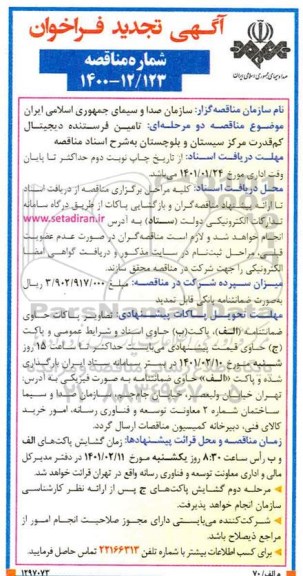 آگهی تجدید فراخوان
شماره مناقصه
۱۴۰۰-۱۲/۱۲۳
صدا و سیمای جمهوری اسلامی ایران
نام سازمان مناقصه‌گزار: سازمان صدا و سیمای جمهوری اسلامی ایران
موضوع مناقصه دو مرحله‌ای: تامین فرستنده دیجیتال
کم‌قدرت مرکز سیستان و بلوچستان به‌شرح اسناد مناقصه
مهلت دریافت اسناد: از تاریخ چاپ نوبت دوم حداکثر تا پایان
وقت اداری مورخ ۱۴۰۱/۰۱/۲۴ می‌باشد
محل دریافت اسناد: کلیه مراحل برگزاری مناقصه از دریافت اسناد
تا ارائه پیشنهاد مناقصه‌گران و بازگشایی پاکات از طریق درگاه سامانه
تدارکات الکترونیکی دولت (ستاد) به آدرس www.setadiran.ir
انجام خواهد شد و لازم است مناقصه‌گران در صورت عدم عضویت
قبلی، مراحل ثبت‌نام در سایت مذکور و دریافت گواهی امضا
الکترونیکی را جهت شرکت در مناقصه محقق سازند.
میزان سپرده شرکت در مناقصه: مبلغ ۳/۹۰۲/۹۱۷/۰۰۰ ریال
به‌صورت ضمانتنامه بانکی قابل تمدید
مهلت تحویل پاکات پیشنهادی: تصاویر پاکات حاوی
ضمانتنامه (الف)، پاکت(ب) حاوی اسناد و شرایط عمومی و پاکت
(ج) حاوی قیمت پیشنهادی می‌بایست حداکثر تا ساعت ۱۵ روز
شنبه مورخ ۱۴۰۱/۰۲/۱۰ در بستر سامانه ستاد ایران بارگذاری
شده و پاکت «الف» حاوی ضمانتنامه به صورت فیزیکی به آدرس:
تهران خیابان ولیعصر (عج)، خ جام‌جم، سازمان صدا و سیما
ساختمان شماره ۲ معاونت توسعه و فناوری رسانه، امور خرید
کالای فنی، دبیرخانه کمیسیون مناقصات ارسال گردد.
زمان مناقصه و محل قرائت پیشنهادها: زمان گشایش پاکت‌های الف
و ب رأس ساعت ۸:۳۰ روز یکشنبه مورخ ۱۴۰۱/۰۲/۱۱ در دفتر مدیرکل
مالی و اداری معاونت توسعه و فناوری رسانه واقع در تهران قرائت خواهد شد.
مرحله دوم گشایش پاکت‌های ج پس از ارائه نظر کارشناسی
سازمان انجام خواهد پذیرفت.
شرکت‌کننده می‌بایستی دارای مجوز صلاحیت انجام امور از
مراجع ذیصلاح باشد.
برای کسب اطلاعات بیشتر با شماره تلفن ۲۲۱۶۶۳۱۳ تماس حاصل فرمایید.
م الف/۷۰
۱۲۹۷۰۷۳